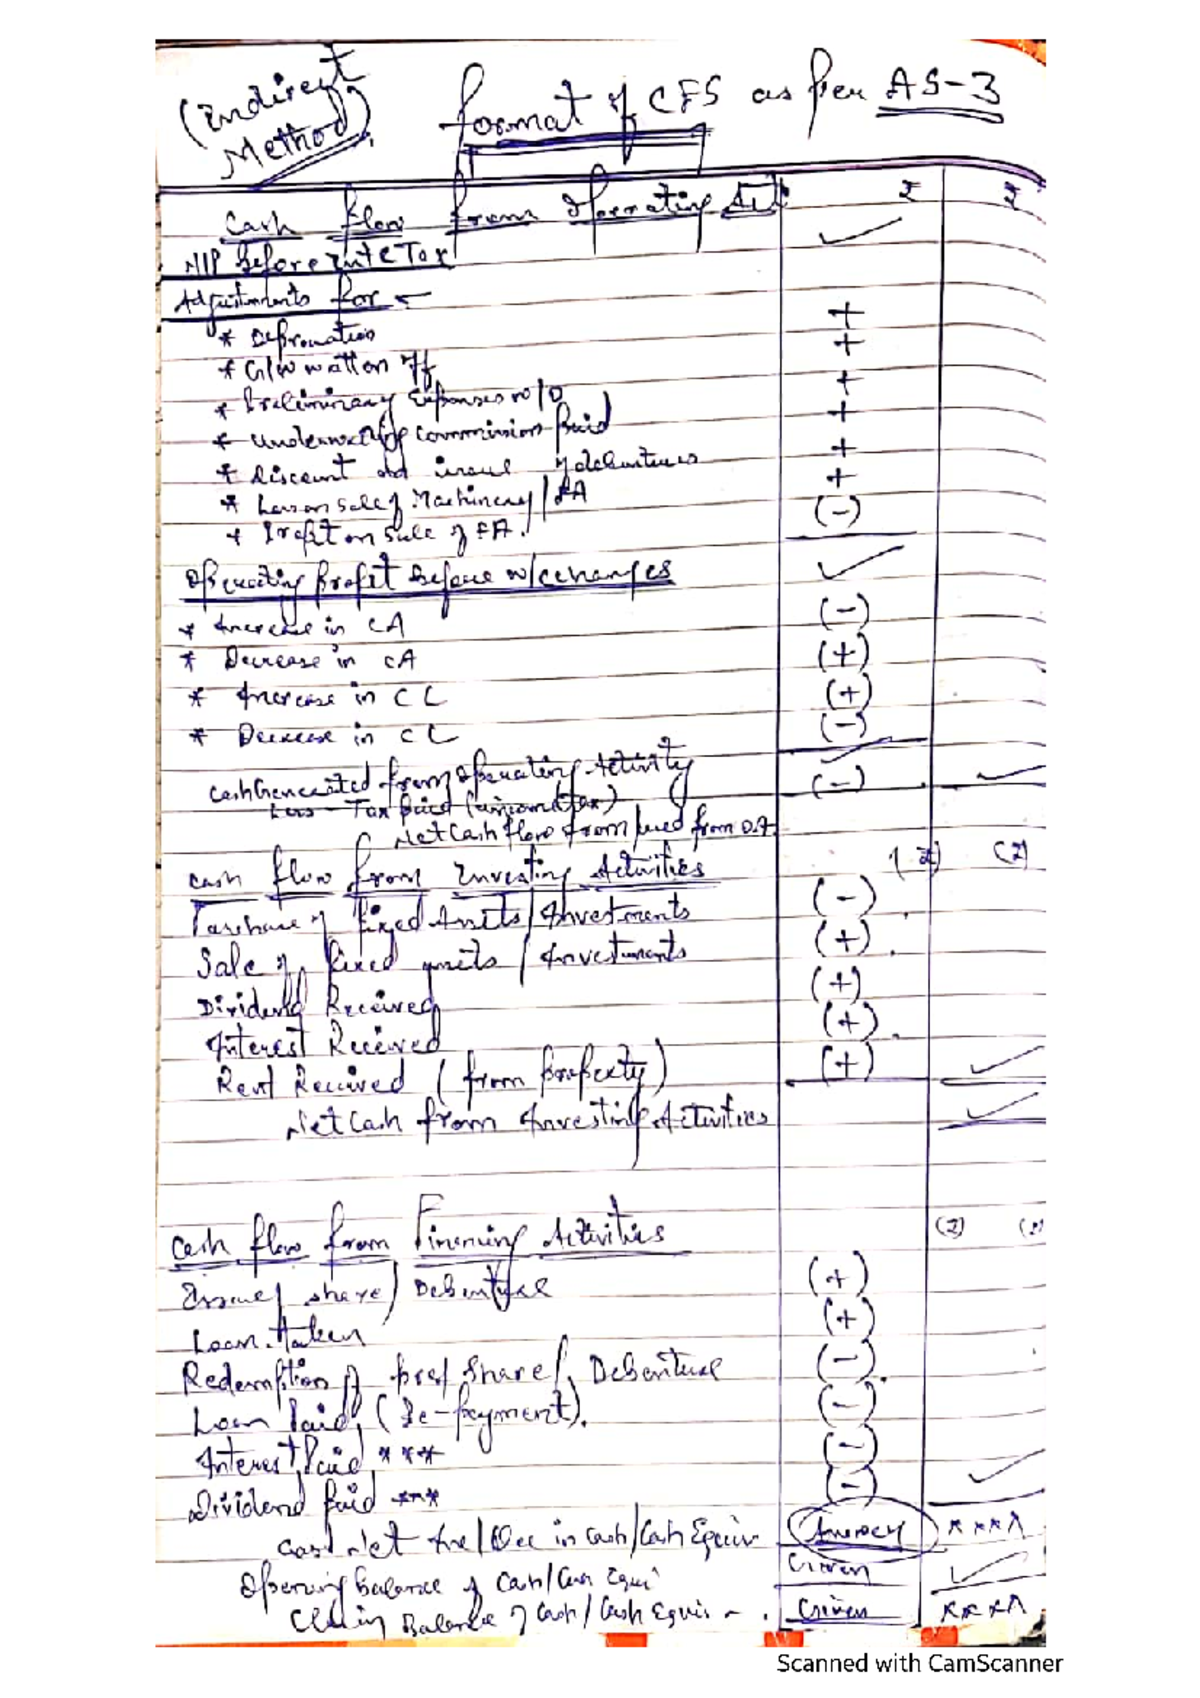 (Indirect
Method)
Format of CFS as per AS-3
Cash flow from Operating Act
₹ ₹
N/P Before Int & Tax
Adjustments for -
* Depreciation +
* G/W written off +
* Preliminary Expenses w/o +
* Underwriting commission paid +
* Discount on issue of debentures +
* Loss on sale of Machinery / FA +
* Profit on Sale of FA. (-)
Operating profit before w/c changes
* Increase in CA (-)
* Decrease in CA (+)
* Increase in CL (+)
* Decrease in CL (-)
Cash Generated from Operating Activity
Less - Tax paid (income tax) (-)
Net Cash flow from / used from O.A.
Cash flow from Investing Activities (₹) (₹)
Purchase of Fixed Assets / Investments (-)
Sale of Fixed assets / Investments (+)
Dividend Received (+)
Interest Received (+)
Rent Received (from property) (+)
Net Cash from Investing Activities
Cash flow from Financing Activities (₹)
Issue of share / Debenture (+)
Loan taken (+)
Redemption of pref share / Debenture (-)
Loan Paid (Re-payment). (-)
Interest Paid *** (-)
Dividend Paid *** (-)
Net Ine / Dec in cash / Cash Equiv ****
Opening Balance of Cash / Cash Equi Given
Closing Balance of Cash / Cash Equiv - . Given ****
Scanned with CamScanner